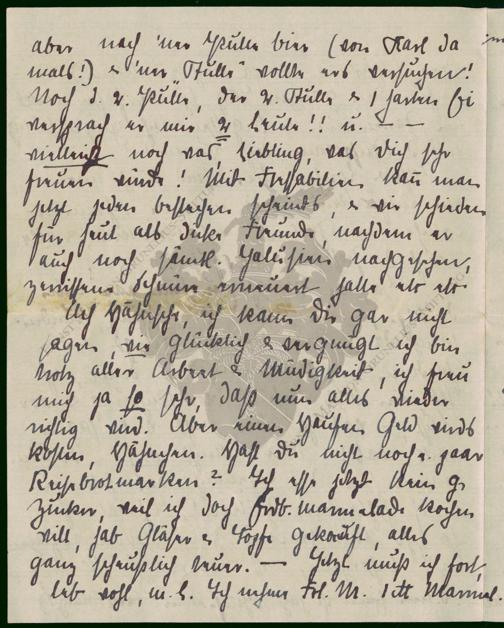 aber nach 'ner Pulle bier (von Karl da
mals!) & 'ner "Stulle" wollte ers versuchen!
Noch d. 2. Pulle, der 2. Stulle & 1 harten (Ei
versprach er mir 2 Leute!! u. — —
vielleicht noch was, Liebling, was dich sehr
freuen würde! Mit Fressabilien kann man
jetzt jeden bestechen scheints, & wir schieden
für heut als dicke Freunde, nachdem er
auch noch sämtl. Jalusien nachgesehen,
zerrissene Schnüre erneuert hatte etc etc
Ach Hähnsche, ich kann dir gar nicht
sagen, wie glücklich & vergnügt ich bin
trotz aller Arbeit & Müdigkeit, ich freu
mich ja so sehr, daß nun alles wieder
richtig wird. Aber einen Haufen Geld wirds
kosten, Hähnchen. Hast du nicht noch e. paar
Reisebrotmarken? Ich esse jetzt kein g.
Zucker, weil ich doch Erdb. marmelade kochen
will, hab Gläser & Töpfe gekauft, alles
ganz scheußlich teuer. — Jetzt muß ich fort,
leb wohl, m. L. Ich nehme Frl. M. 1 tt Marmel.